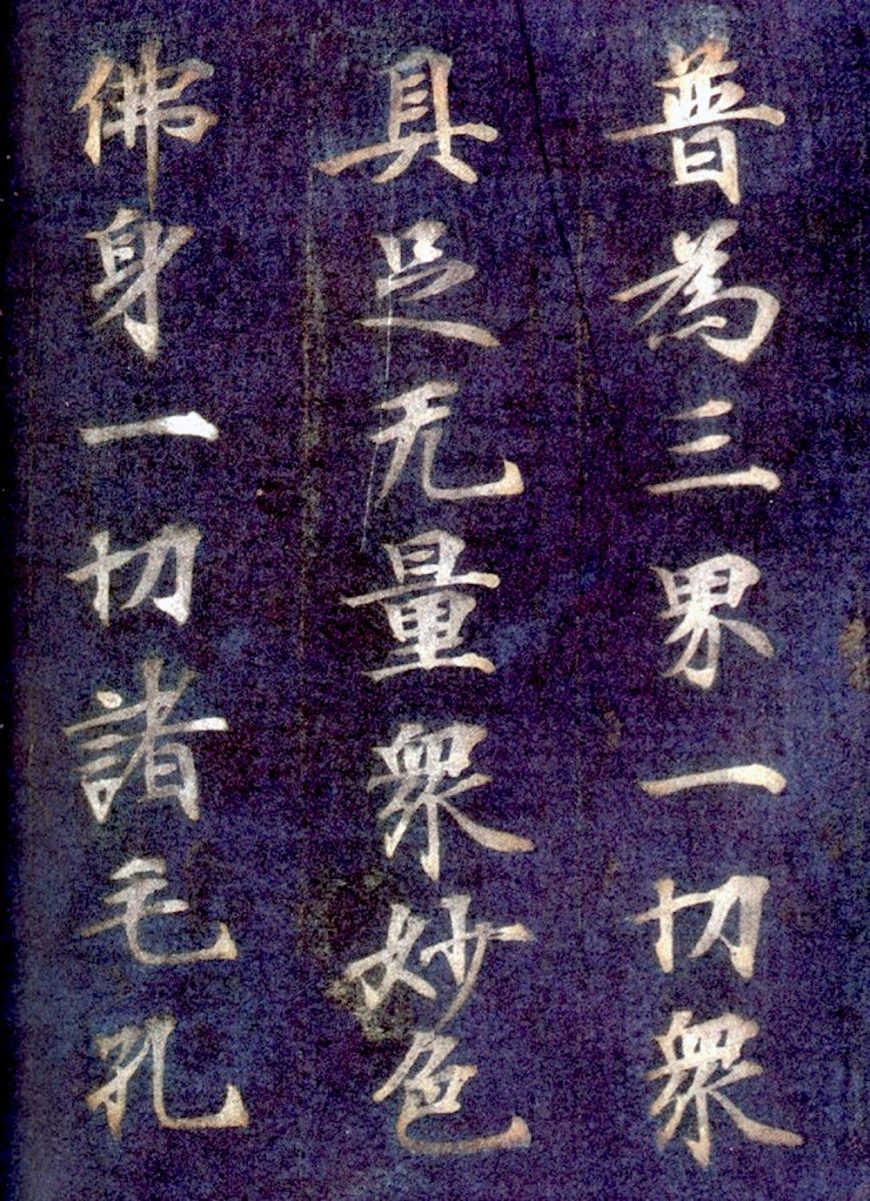 普為三界一切衆
具足无量衆妙色
佛身一切諸毛孔